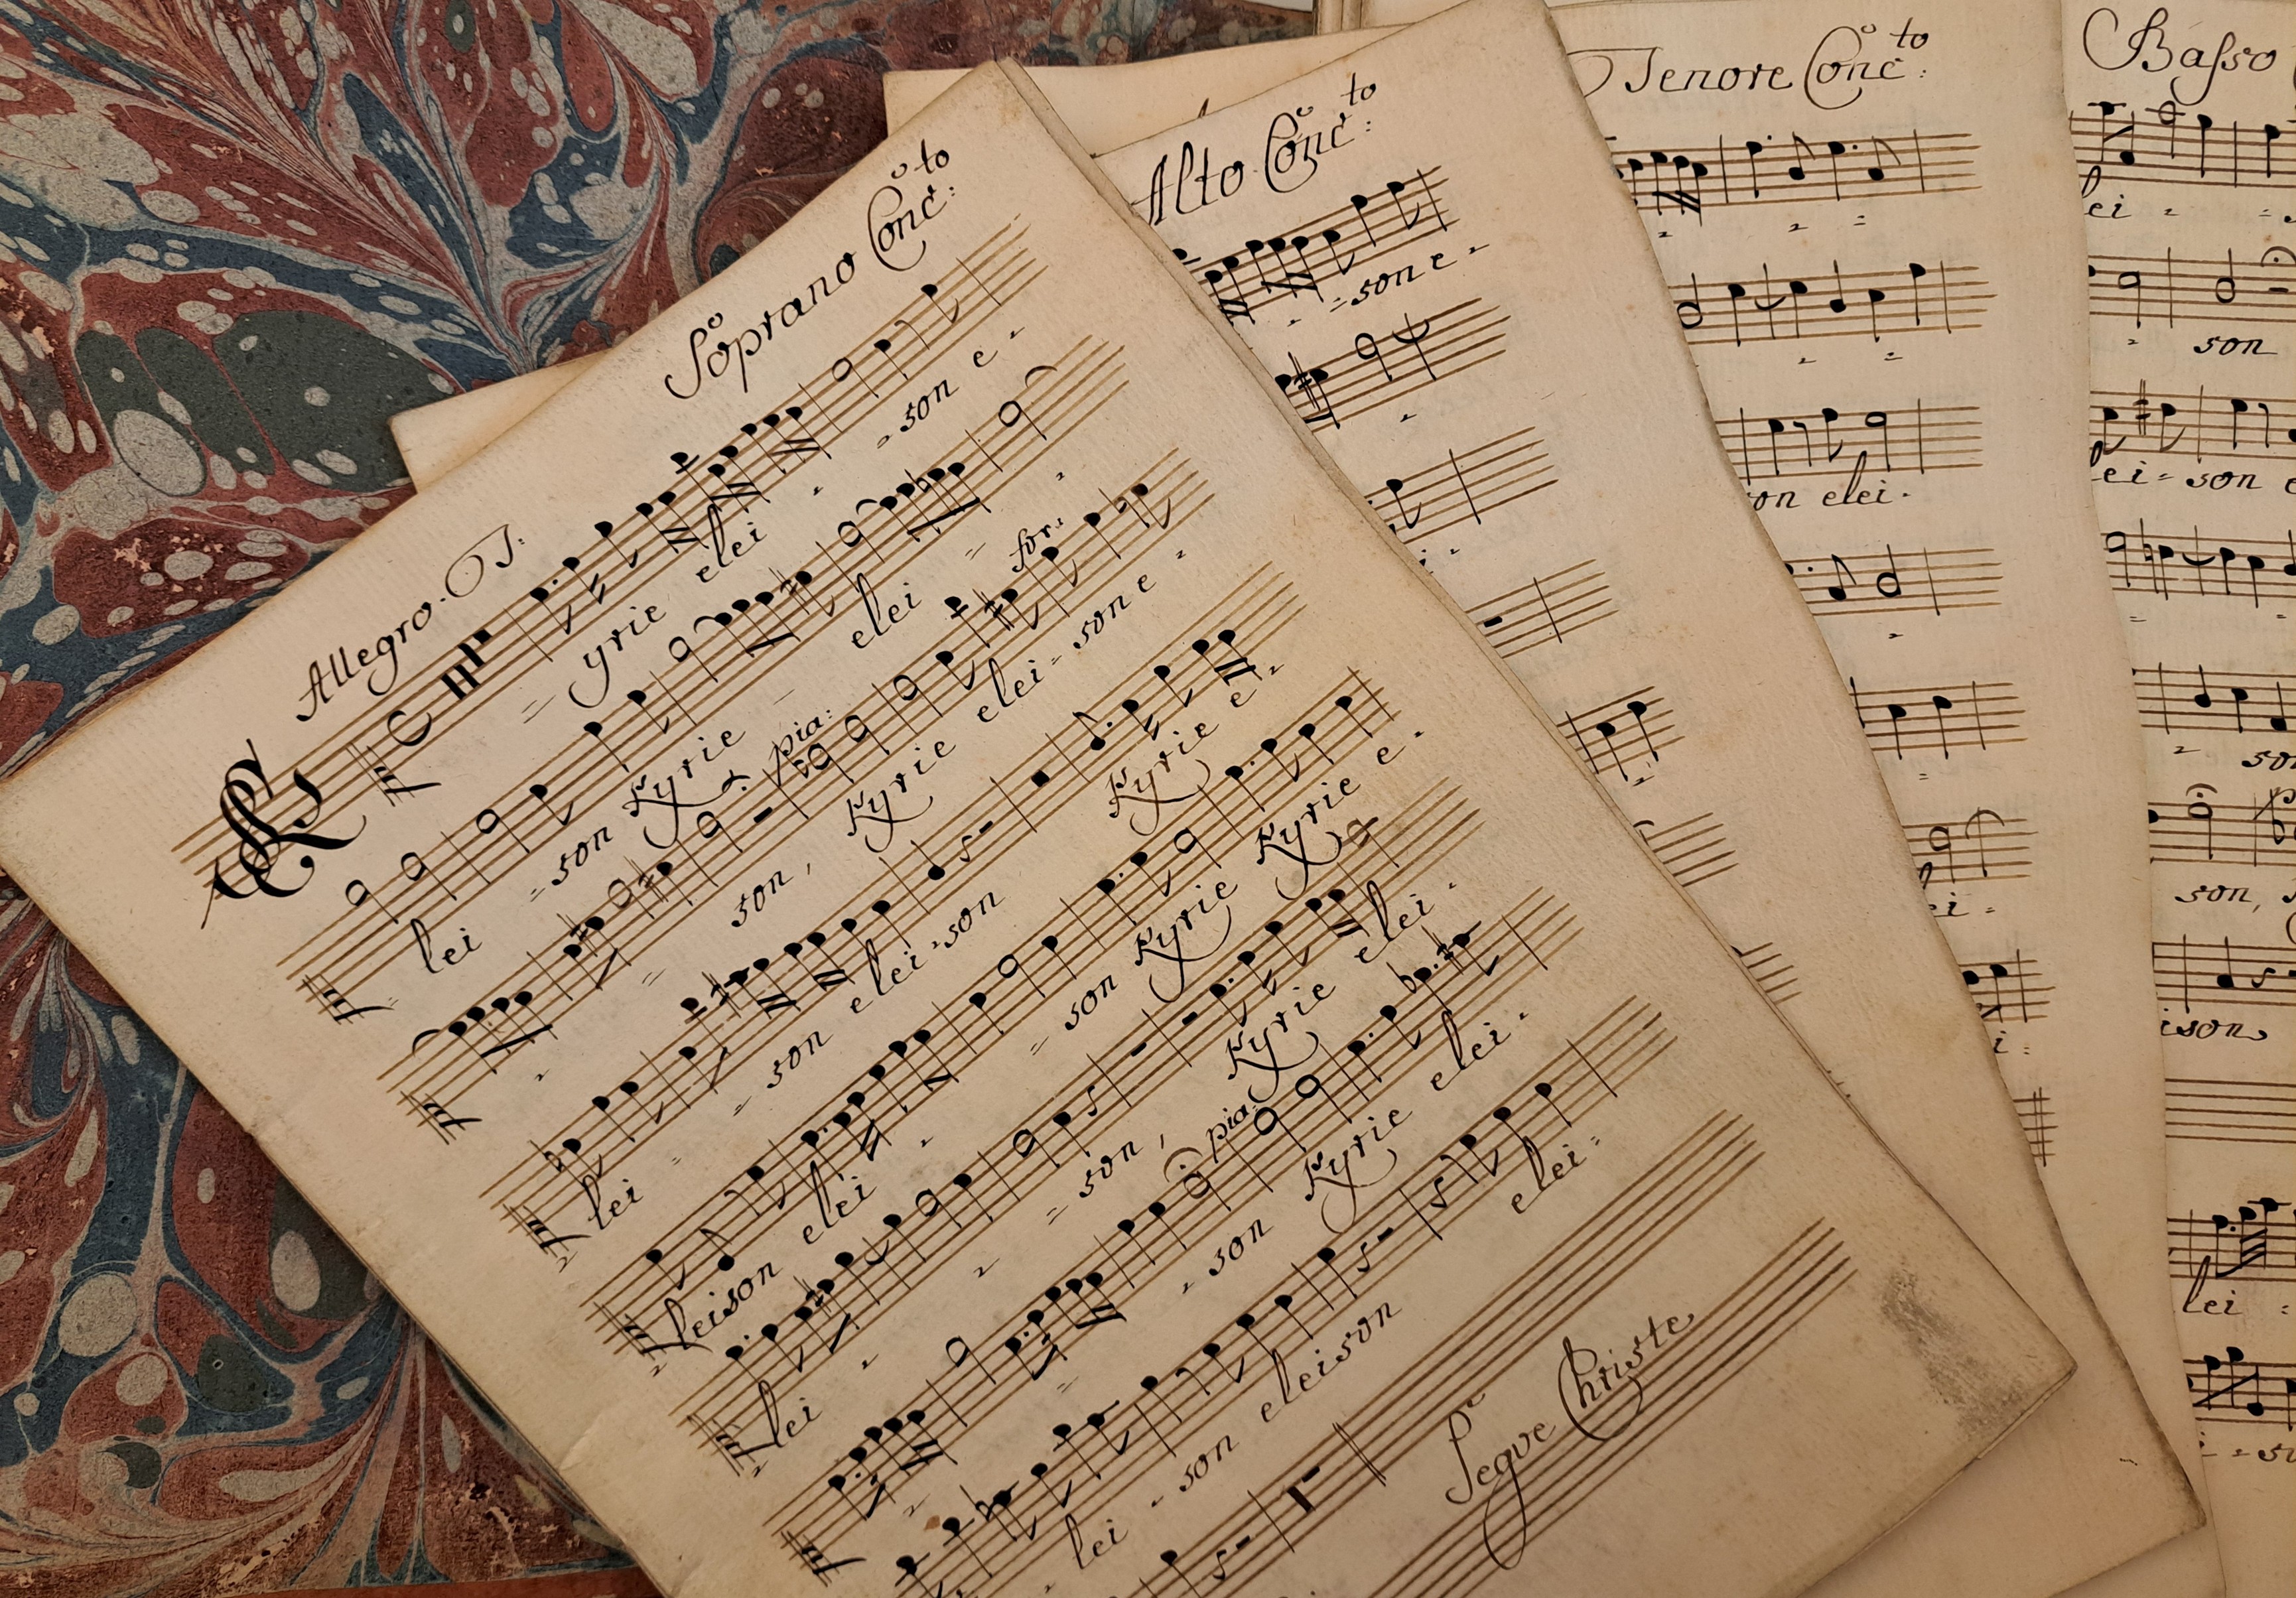 Soprano Conc:to
Allegro. T:
Kyrie elei - son e -
lei - son Kyrie elei
pia: for:
son, Kyrie elei - son e -
lei - son elei - son Kyrie e -
leison elei - son Kyrie Kyrie e -
lei - son, Kyrie elei -
pia:
- son Kyrie elei -
lei - son eleison elei -
Segue Christe
Alto Conc:to
- son e -
Tenore Conc:to
elei -
Basso
lei -
son
lei - son e
son,
lei -